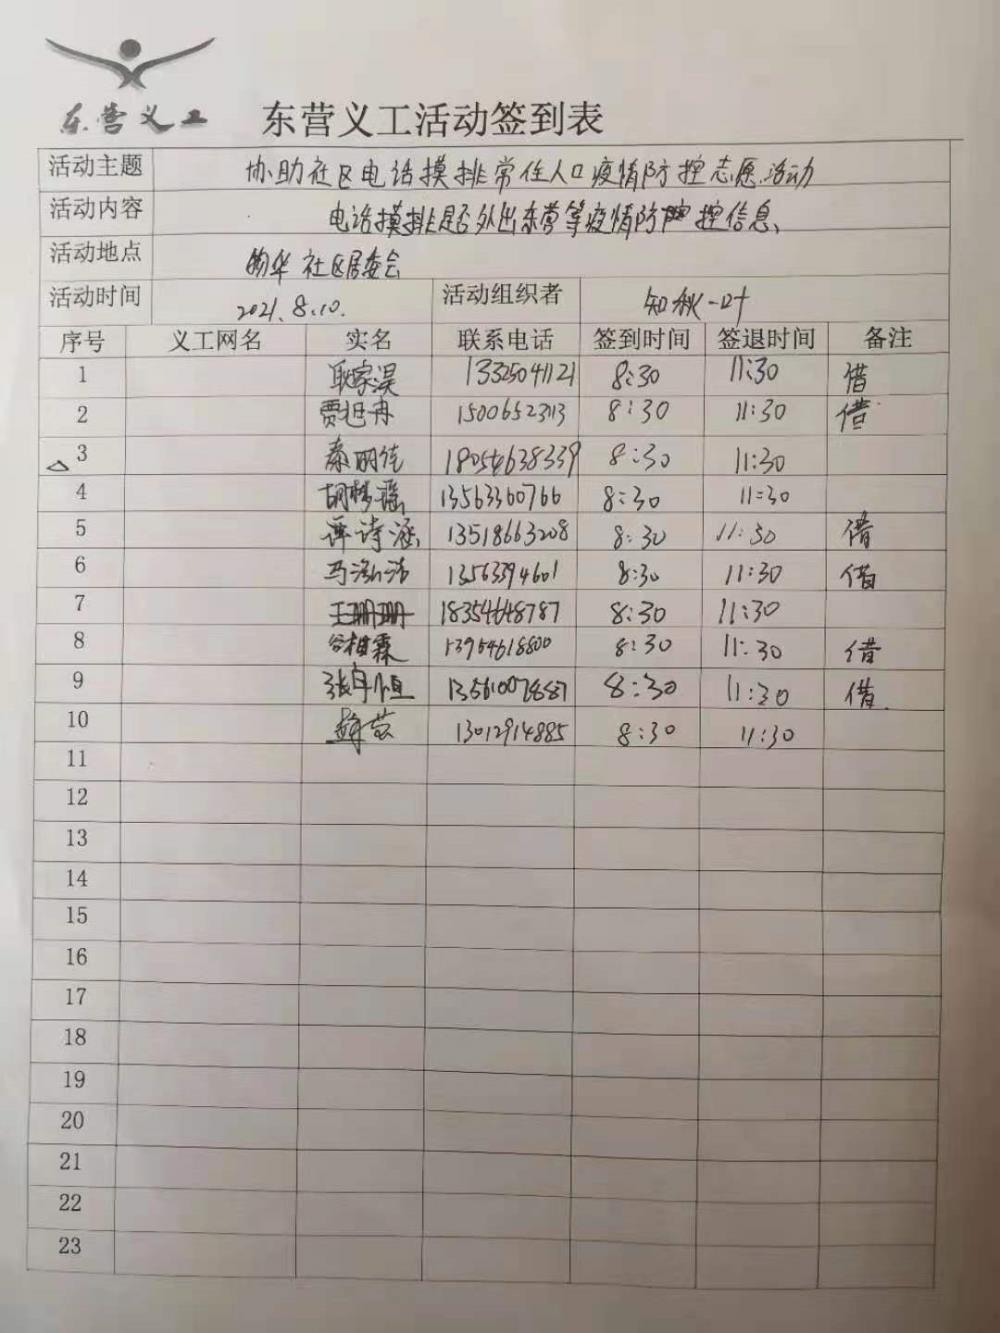 东营义工 东营义工活动签到表
活动主题 协助社区电话摸排常住人口疫情防控志愿活动
活动内容 电话摸排是否外出东营等疫情防控信息、
活动地点 社区居委会
活动时间 2021.8.10. 活动组织者 知秋一叶
序号 义工网名 实名 联系电话 签到时间 签退时间 备注
1 13325041121 8:30 11:30 借
2 15006523113 8:30 11:30 借
3 秦丽佳 18054638339 8:30 11:30
4 胡梦瑶 13563360766 8:30 11:30
5 谭诗涵 13518663208 8:30 11:30 借
6 8:30 11:30 借
7 王珊珊 18354648787 8:30 11:30
8 13954618800 8:30 11:30 借
9 8:30 11:30 借
10 13012914885 8:30 11:30
11
12
13
14
15
16
17
18
19
20
21
22
23